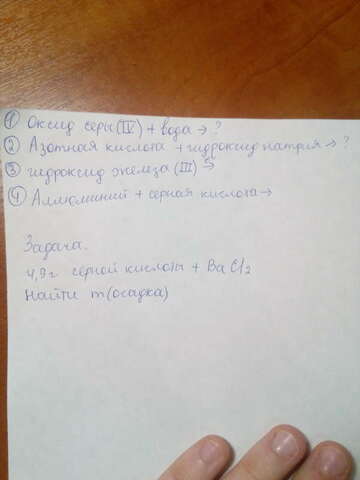 ① Оксид серы (IV) + вода → ?
② Азотная кислота + гидроксид натрия → ?
③ гидроксид железа (III) →
④ Аллюминий + серная кислота →
Задача.
4,9 г серной кислоты + BaCl₂
Найти m(осадка)